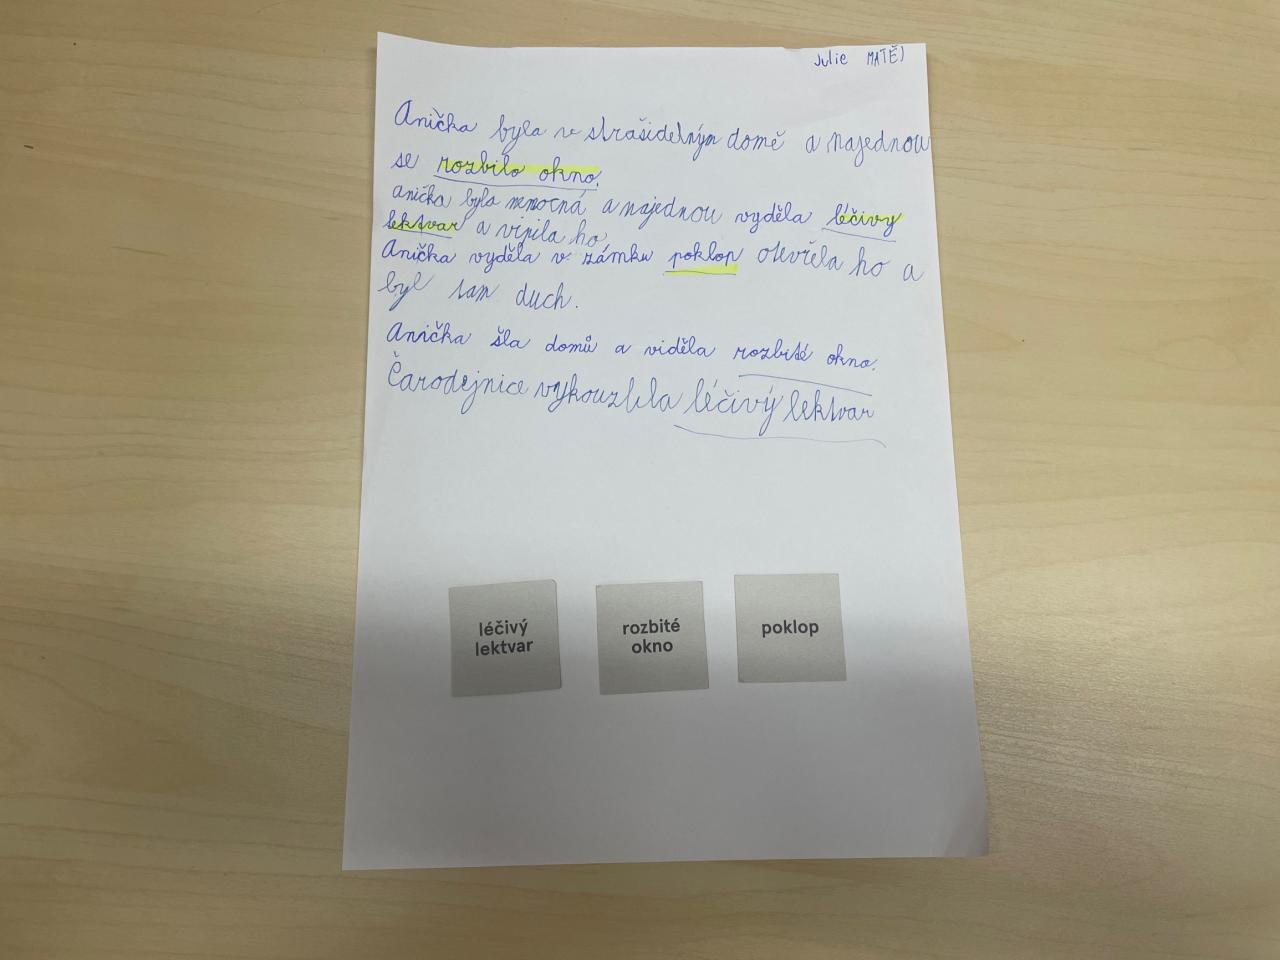 Julie MATĚJ
Anička byla v strašidelným domě a najednou
se rozbilo okno.
anička byla nemocná a najednou vyděla léčivy
lektvar a vipila ho
Anička vyděla v zámku poklop otevřela ho a
byl tam duch.
Anička šla domů a viděla rozbité okno.
Čarodejnice vykouzlila léčivý lektvar
léčivý
lektvar
rozbité
okno
poklop